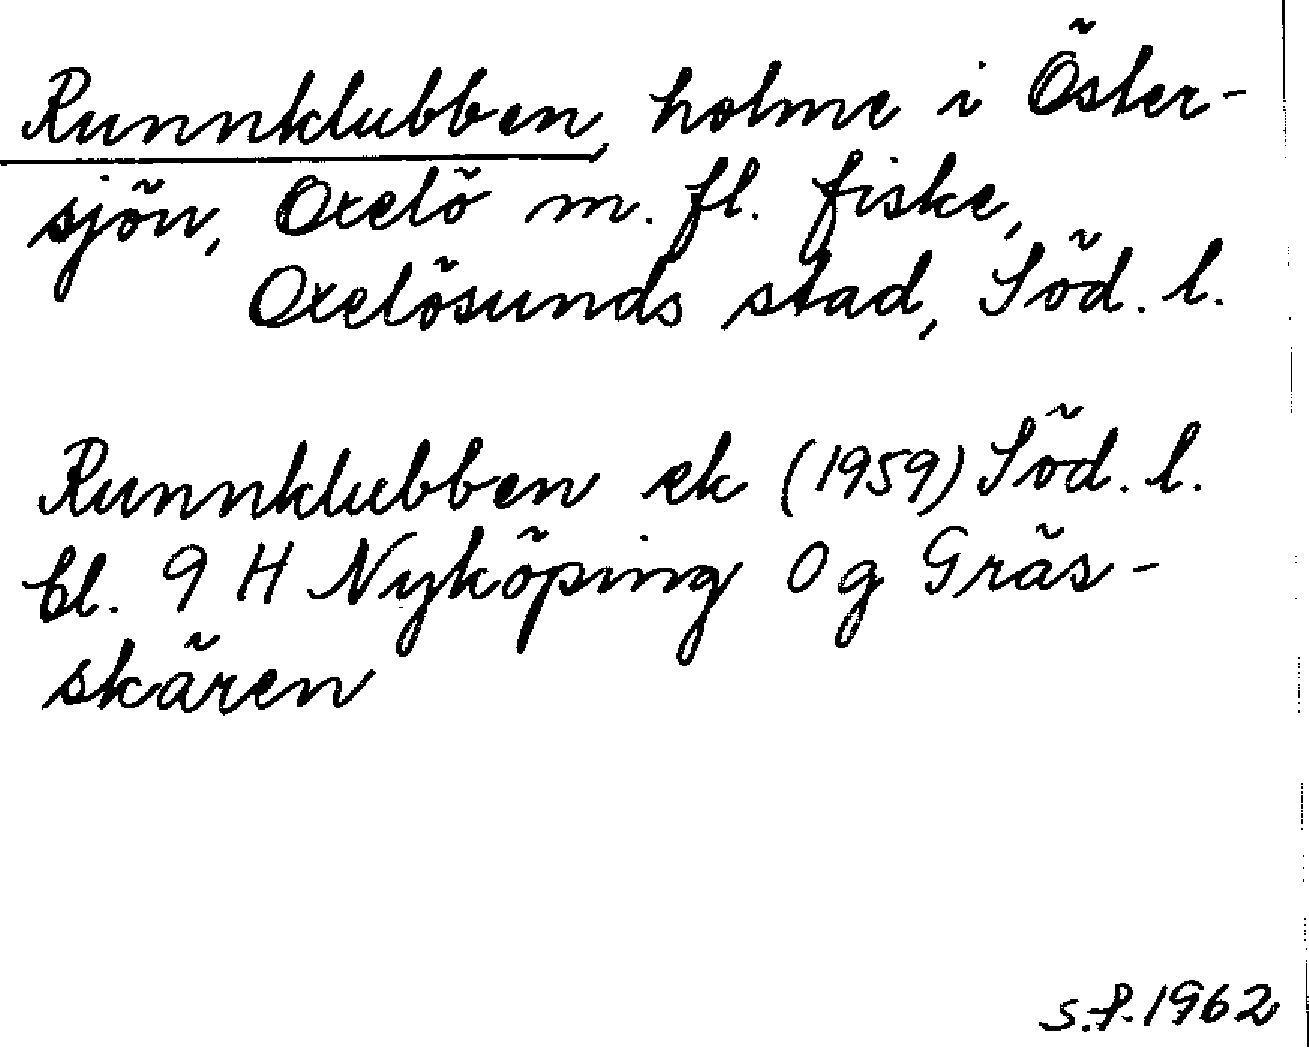 Runnklubben, holme i Öster-
sjön, Oxelö m. fl. fiske,
Oxelösunds stad, Söd. l.
Runnklubben ek (1959) Söd. l.
bl. 9 H Nyköping 0 g Gräs-
skären
S.P. 1962